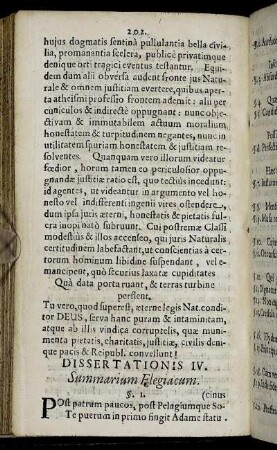 202.
hujus dogmatis sentinâ pullulantia bella civi-
lia, promanantia scelera, publicè privatimque
denique orti tragici eventus testantur. Equi-
dem dum alii obversâ audent fronte jus Natu-
rale & omnem justitiam evertere, quibus aper-
ta atheismi professio frontem ademit: alii per
cuniculos & indirectè oppugnant: nunc objec-
tivam & immutabilem actuum moralium,
honestatem & turpitudinem negantes, nunc in
utilitatem spuriam honestatem & justitiam re-
solventes. Quanquam vero illorum videatur
fœdior, horum tamen eo periculosior oppug-
nandæ justitiæ ratio est, quo tectius incedunt:
id agentes, ut videantur in argumento vel ho-
nesto vel indifferenti ingenii vires ostendere,
dum ipsa juris æterni, honestatis & pietatis ful-
cra inopinatò subruunt. Cui postremæ Classi
modestius & illos accenseo, qui juris Naturalis
certitudinem labefactant, ut conscientias à cer-
torum hominum libidine suspendant, vel e-
mancipent, quò securius laxatæ cupiditates
Quà data porta ruant, & terras turbine
perflent.
Tu vero, quod superest, æterne legis Nat. condi-
tor DEUS, serva hanc puram & intaminatam,
atque ab illis vindica corruptelis, quæ muni-
menta pietatis, charitatis, justitiæ, civilis deni-
que pacis & Reipubl. convellunt!
DISSERTATIONIS IV.
Summarium Elegiacum.
§. 1. (cinus
POst patrum paucos, post Pelagiumque So-
Te puerum in primo fingit Adame statu.